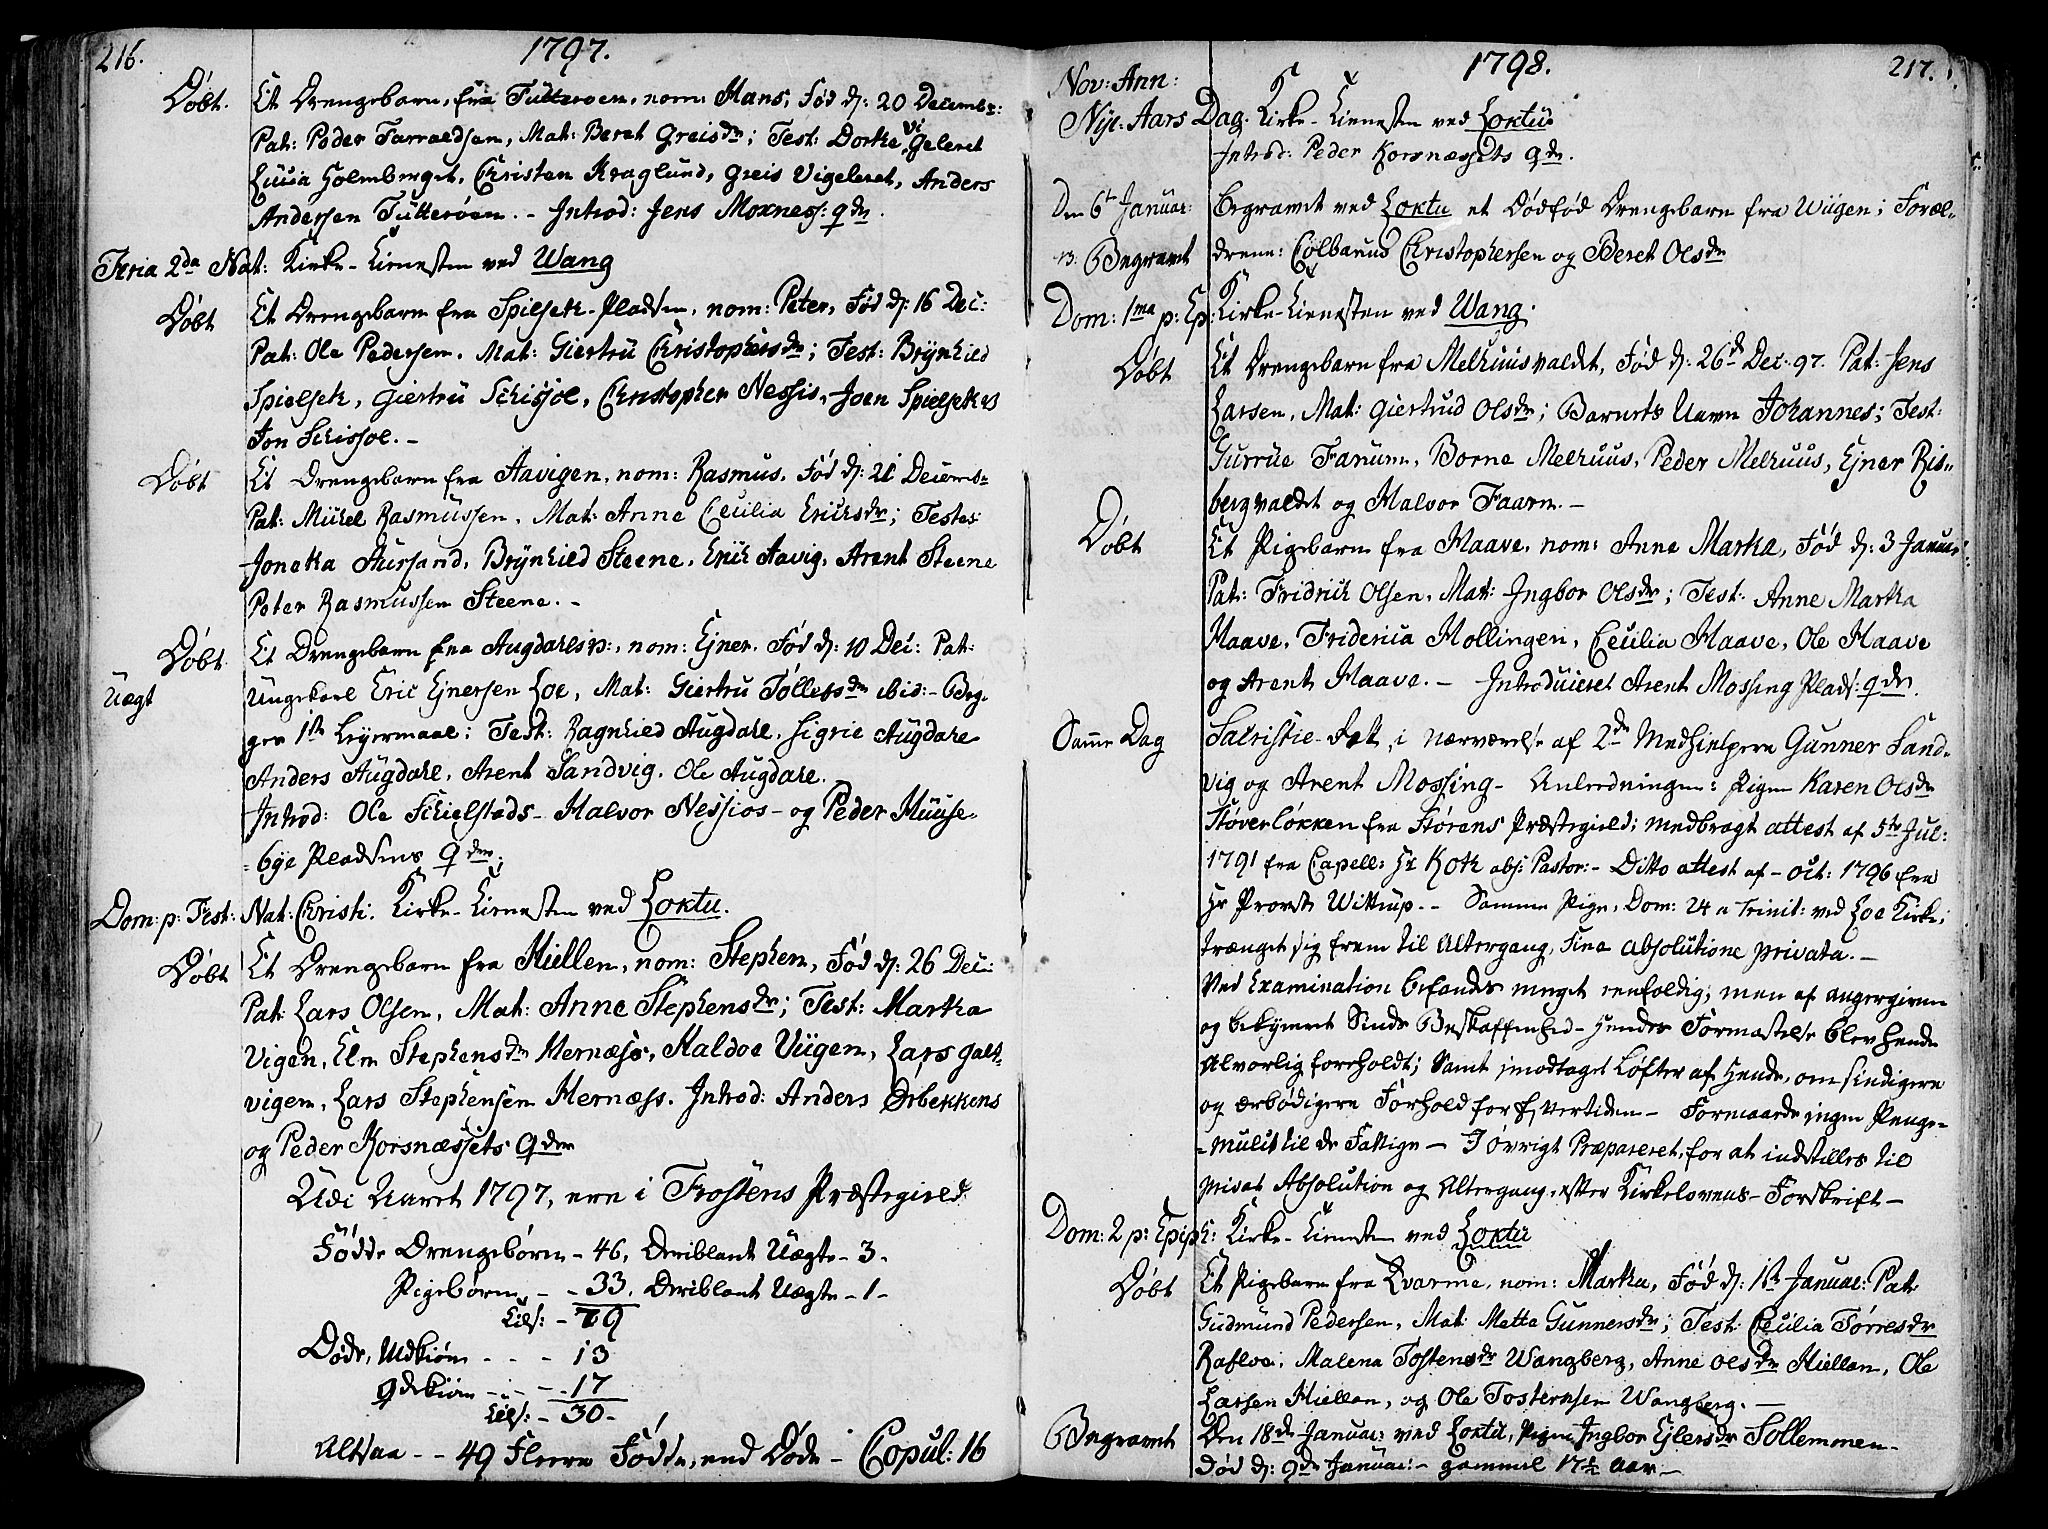 216.
1797.
Døbt. Et Drengebarn, fra Tutterøen, nom: Hans, Fød d: 20 Decembr:
Pat: Peder Farraldsen, Mat: Beret Greisdr; Test: Dorke Vigeleret
Lucia Holmberget, Christen Kraglund, Greis Vigeleret, Anders
Andersen Tutterøen. - Introd: Jens Moxness: qdr.
Feria 2da Nat: Kirke-Tienesten ved Wang
Døbt Et Drengebarn fra Spilsek-Pladsen, nom: Peter, Fød d: 16 Dec:
Pat: Ole Pedersen. Mat: Giertru Christophersdr; Test: Brynhild
Spielsek, Giertru Schisjol, Christopher Nessis, Joen Spielsek
Jon Schisjol. -
Døbt Et Drengebarn fra Aavigen, nom: Rasmus. Fød d: 21 Decemb-
Pat: Michel Rasmussen, Mat: Anne Cecilia Erichsdr; Testes
Joneka Aursand, Brynhild Steene, Erich Aavig, Arent Steene
Peter Rasmussen Steene. -
Døbt Et Drengebarn fra Augdalls, nom: Ejner. Fød d: 10 Dec: Pat:
Uægt Ungekarl Eric Ejnersen Loe, Mat: Giertru Tøllefsdr ibid:- Beg-
ges 1ste Leyermaal; Test: Ragnhild Augdahl, Sigrie Augdahl
Anders Augdahl, Arent Sandvig, Ole Augdahl.
Introd: Ole Schielstads - Halvor Nessios - og Peder Huuse-
-bye Pladsens qdrs;
Dom: p: Fest: Nat: Christi. Kirke-Tienesten ved Loktu.
Døbt Et Drengebarn fra Hiellen, nom: Stephen, Fød d: 26 Dec:
Pat: Lars Olsen, Mat: Anne Stephensdr; Test: Marka
Vigen, Elen Stephensdr Hernæss, Haldoe Viigen, Lars Galt-
vigen, Lars Stephensen Hernæss. Introd: Anders Ørbekkens
og Peder Korsnæssets qdrs
Udi Aaret 1797, ere i Frostens Præstegield
Fødde Drengebørn - 46, Deriblant Uægte - 3 -
Pigebørn - - 33, Deriblant Uægte - 1 -
Tils: - 79
Døde, Mdkiøn - - - 13
qdekiøn - - - 17
Tils: - 30 -
Altsaa - - 49 Fleere Fødde, end Døde - Copul: 16
1798.
217.
Nov: Ann:
Nye-Aars Dag. Kirke-Tienesten ved Loktu
Introd: Peder Korsnæssets qdr.
Den 6te Januar: Begravet ved Loktu et Dødfød Drengebarn fra Viigen; Foræl-
Begravet drene: Colbanus Christophersen og Beret Olsdr
Dom: 1ma p: Ep: Kirke-Tienesten ved Wang.
Døbt Et Drengebarn fra Melhuusvaldet, Fød d: 26de Dec: 97. Pat: Jens
Larsen, Mat: Giertrud Olsdr; Barnets Navn Johannes; Test:
Gurrue Fanum, Borne Melhuus, Peder Melhuus, Ejner Ris-
bergvaldet og Halvor Faarn. -
Døbt Et Pigebarn fra Haave, nom: Anne Marka, Fød d: 3 Januar:
Pat: Fridrich Olsen, Mat: Ingbor Olsdr; Test: Anne Marka
Haave, Friderica Hollingen, Cecilia Haave, Ole Haave
og Arent Haave. - Introduceret Arent Mossing Plads: qdr.
Samme Dag Sacristie-Ret, i nærværelse af 2de Medhielpere Gunner Sand-
vig og Arent Mossing - Anledningen: Pigen Karen Olsdr
Støverløkken fra Størens Præstegield; medbragt attest af 5te Jul:
1791 fra Capell: Hr Koth abs: Pastor:- Ditto attest af - Oct: 1796 fra
Hr Provst Wittrup. - Samme Pige, Dom: 24 a Trinit: ved Loe Kirke,
trænget sig frem til Altergang, sine absolutione privata. -
Ved Examination befandtes meget eenfoldig; men af angergiven
og bekymret Sinds Beskaffenhed - Hendes Formastelse blev hende
alvorlig foreholdt; Samt imodtaget Løfter af Hende, om sindigere
og ærbødigere Forhold for Eftertiden - Formaade ingen Penge-
-mulct til de Fattige - I øvrigt Præpareret, for at indstilles til
privat Absolution og Altergang, efter Kirkelovens Forskrift -
Dom: 2 p: Epiph: Kirke-Tienesten ved Loktu
Døbt Et Pigebarn fra Qvarme, nom: Marka, Fød d: 1ste Januar: Pat
Gudmund Pedersen, Mat: Metta Gunnersdr; Test: Cecilia Tørresdr
Rafloe, Malena Tostensdr Wangberg, Anne Olsdr Hiellan, Ole
Larsen Hiellan, og Ole Tostensen Wangberg. -
Begravet Den 18de Januar: ved Loktu, Pigen Ingbor Ejlersdr Sollemmen -
Død d: 9de Januar: - gammel 17½ Aar -